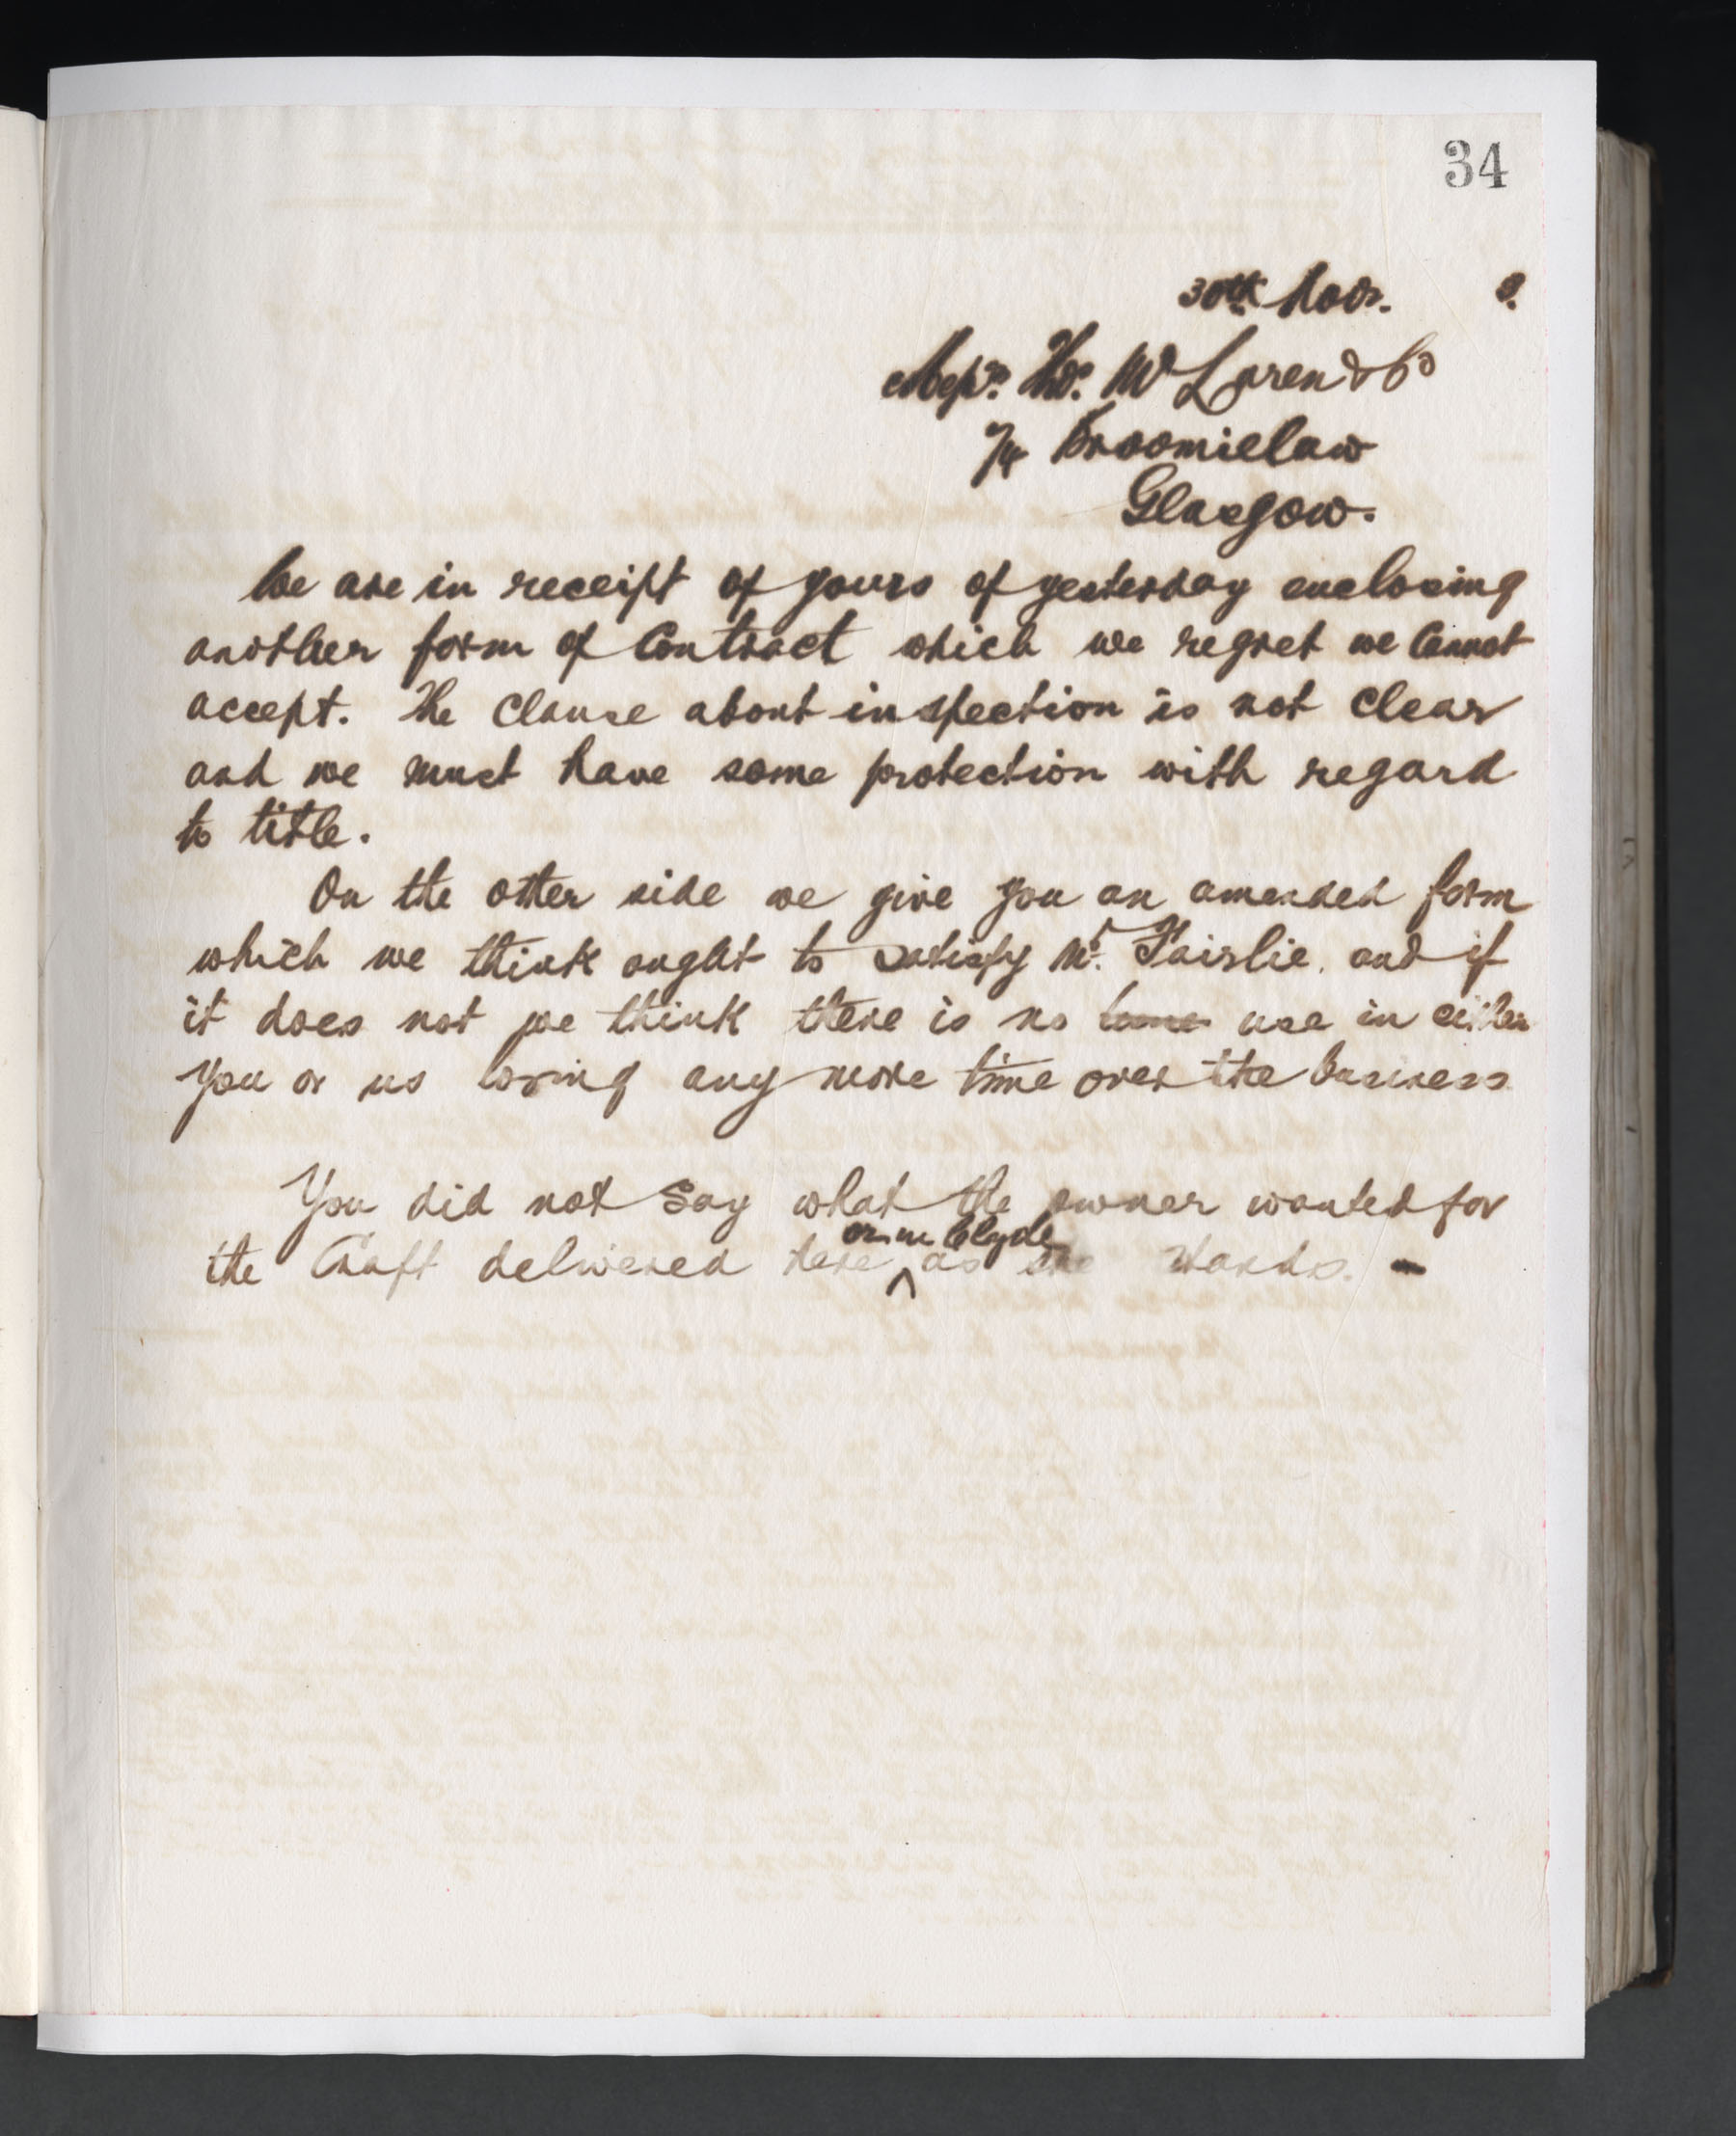 34
30th Novr. 8.
Messrs. Thos. McLaren & Co
74 Broomielaw
Glasgow.
We are in receipt of yours of yesterday enclosing
another form of Contract which we regret we Cannot
accept. The Clause about inspection is not clear
and we must have some protection with regard
to title.
On the other side we give you an amended form
which we think ought to satisfy Mr. Fairlie. and if
it does not we think there is no use in either
you or us losing any more time over the business
You did not say what the owner wanted for
or in Clyde
the Craft delivered here ^ as she stands. -